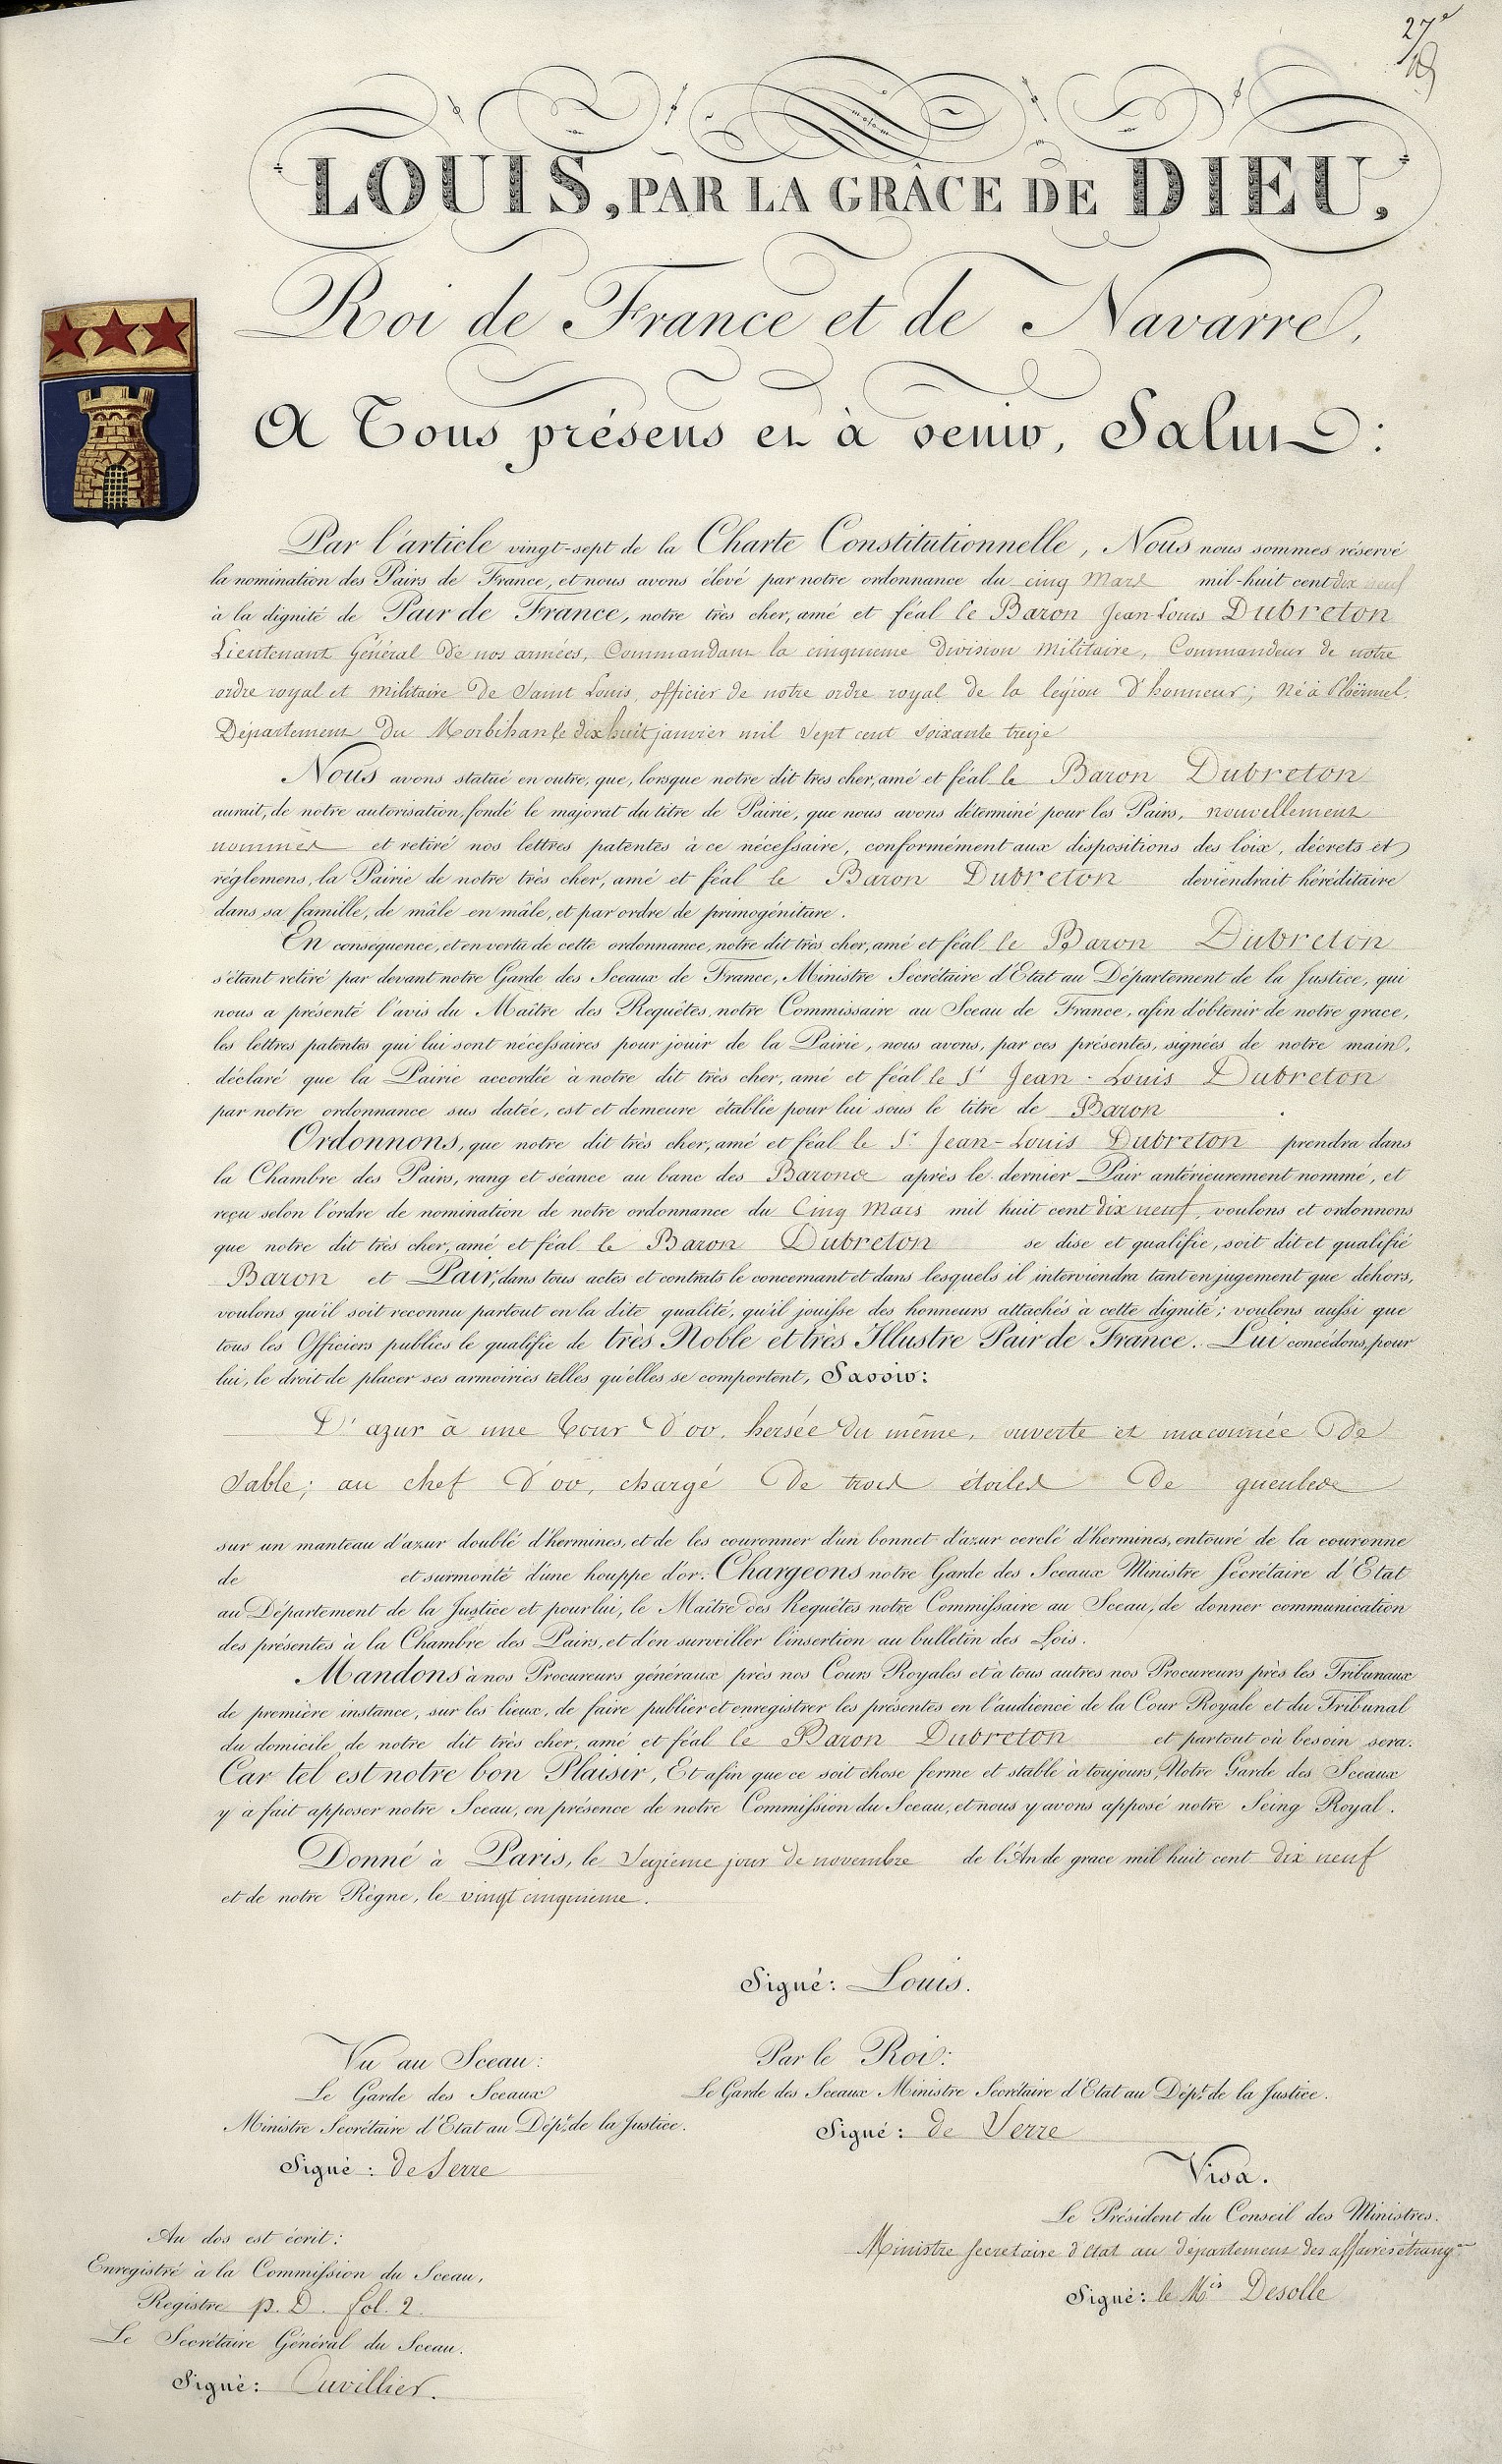 27e
LOUIS, PAR LA GRÂCE DE DIEU,
Roi de France et de Navarre,
A Tous présens et à venir, Salut :
Par l'article vingt-sept de la Charte Constitutionnelle, Nous nous sommes réservé
la nomination des Pairs de France, et nous avons élevé par notre ordonnance du cinq Mars mil-huit cent dix neuf
à la dignité de Pair de France, notre très cher, amé et féal le Baron Jean-Louis Dubreton
Lieutenant Général de nos armées, Commandant la cinquieme Division Militaire, Commandeur de notre
ordre royal et militaire de Saint Louis, officier de notre ordre royal de la légion d'honneur; né à Ploërmel,
Département du Morbihan le dix huit janvier mil sept cent soixante treize
Nous avons statué en outre, que, lorsque notre dit très cher, amé et féal le Baron Dubreton
aurait, de notre autorisation, fondé le majorat du titre de Pairie, que nous avons déterminé pour les Pairs, nouvellement
nommés et retiré nos lettres patentes à ce nécessaire, conformément aux dispositions des loix, décrets et
réglemens, la Pairie de notre très cher, amé et féal le Baron Dubreton deviendrait héréditaire
dans sa famille, de mâle en mâle, et par ordre de primogéniture.
En conséquence, et en vertu de cette ordonnance, notre dit très cher, amé et féal le Baron Dubreton
s'étant retiré par devant notre Garde des Sceaux de France, Ministre Secrétaire d'Etat au Département de la Justice, qui
nous a présenté l'avis du Maître des Requêtes, notre Commissaire au Sceau de France, afin d'obtenir de notre grace,
les lettres patentes qui lui sont nécessaires pour jouir de la Pairie, nous avons, par ces présentes, signées de notre main,
déclaré que la Pairie accordée à notre dit très cher, amé et féal le Sr Jean-Louis Dubreton
par notre ordonnance sus datée, est et demeure établie pour lui sous le titre de Baron
Ordonnons, que notre dit très cher, amé et féal le Sr. Jean-Louis Dubreton prendra dans
la Chambre des Pairs, rang et séance au banc des Barons après le dernier Pair antérieurement nommé, et
reçu selon l'ordre de nomination de notre ordonnance du Cinq Mars mil huit cent dix neuf, voulons et ordonnons
que notre dit très cher, amé et féal le Baron Dubreton se dise et qualifie, soit dit et qualifié
Baron et Pair, dans tous actes et contrats le concernant et dans lesquels il interviendra tant en jugement que dehors,
voulons qu'il soit reconnu partout en la dite qualité, qu'il jouisse des honneurs attachés à cette dignité; voulons aussi que
tous les Officiers publics le qualifie de très Noble et très Illustre Pair de France. Lui concédons, pour
lui, le droit de placer ses armoiries telles qu'elles se comportent, Savoir:
D'azur à une Tour d'or, hersée du même, ouverte et maçonnée de
sable; au chef d'or, chargé de trois étoiles de gueules
sur un manteau d'azur doublé d'hermines, et de les couronner d'un bonnet d'azur cerclé d'hermines, entouré de la couronne
de et surmonté d'une houppe d'or. Chargeons notre Garde des Sceaux Ministre Secrétaire d'Etat
au Département de la Justice et pour lui, le Maitre des Requêtes notre Commissaire au Sceau, de donner communication
des présentes à la Chambre des Pairs, et d'en surveiller l'insertion au bulletin des Lois.
Mandons à nos Procureurs généraux près nos Cours Royales et à tous autres nos Procureurs près les Tribunaux
de première instance, sur les lieux, de faire publier et enregistrer les présentes en l'audience de la Cour Royale et du Tribunal
du domicile de notre dit très cher, amé et féal le Baron Dubreton et partout où besoin sera.
Car tel est notre bon Plaisir, Et afin que ce soit chose ferme et stable à toujours, Notre Garde des Sceaux
y a fait apposer notre Sceau, en présence de notre Commission du Sceau, et nous y avons apposé notre Seing Royal.
Donné à Paris, le Seizieme jour de novembre de l'An de grace mil huit cent dix neuf
et de notre Règne, le vingt cinquieme.
Signé: Louis.
Vu au Sceau:
Le Garde des Sceaux
Ministre Secrétaire d'Etat au Dépt. de la Justice.
Signé: de Serre
Par le Roi:
Le Garde des Sceaux Ministre Secrétaire d'Etat au Dépt. de la Justice.
Signé: de Serre
Visa.
Le Président du Conseil des Ministres.
Ministre Secretaire d'etat au département des affaires étrangres
Signé: le Mis Desolle
Au dos est écrit:
Enregistré à la Commission du Sceau,
Registre p. D. fol. 2
Le Secrétaire Général du Sceau.
Signé: Cuvillier.